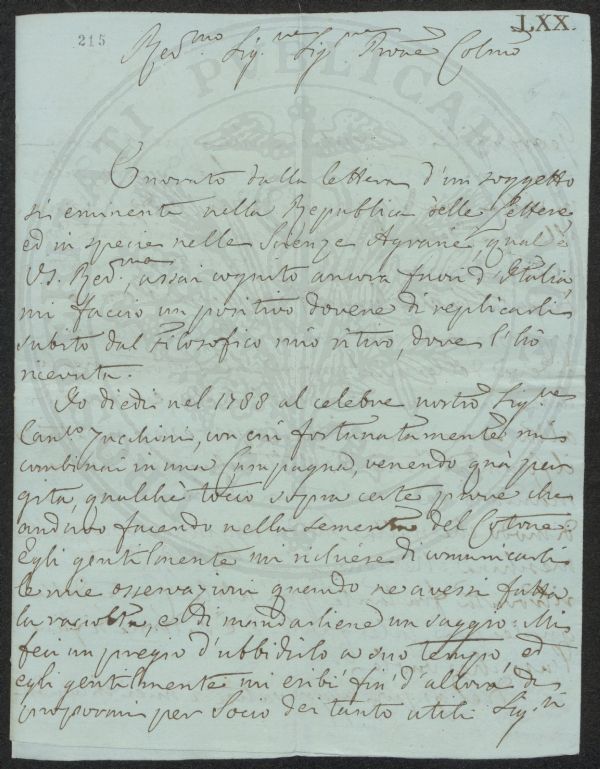 LXX.
215
Red.mo Sig.re Sig.re Prōne Colmō
Onorato dalla lettera d'un soggetto
sì eminente nella Republica delle Lettere
ed in specie nelle Scienze Agrarie, qual'è
VS. Red.ma, assai cognito ancora fuori d'Italia,
mi faccio un positivo dovere di replicarli
subito dal Filosofico mio ritiro, dove l'hò
ricevuta.
Io diedi nel 1788 al celebre nostro Sig.re
Can.co Zucchini, con cui fortunatamente mi
combinai in una Campagna, venendo quà per
gita, qualche tocco sopra certe prove che
andavo facendo nella sementa del Cotone:
Egli gentilmente mi richiese di comunicarli
le mie osservazioni quando ne avessi fatta
la raccolta, e di mandargliene un saggio: Mi
feci un pregio d'ubbidirlo a suo tempo, ed
egli gentilmente mi esibì fin d'allora di
propormi per Socio dei tanto utili Sig.ri